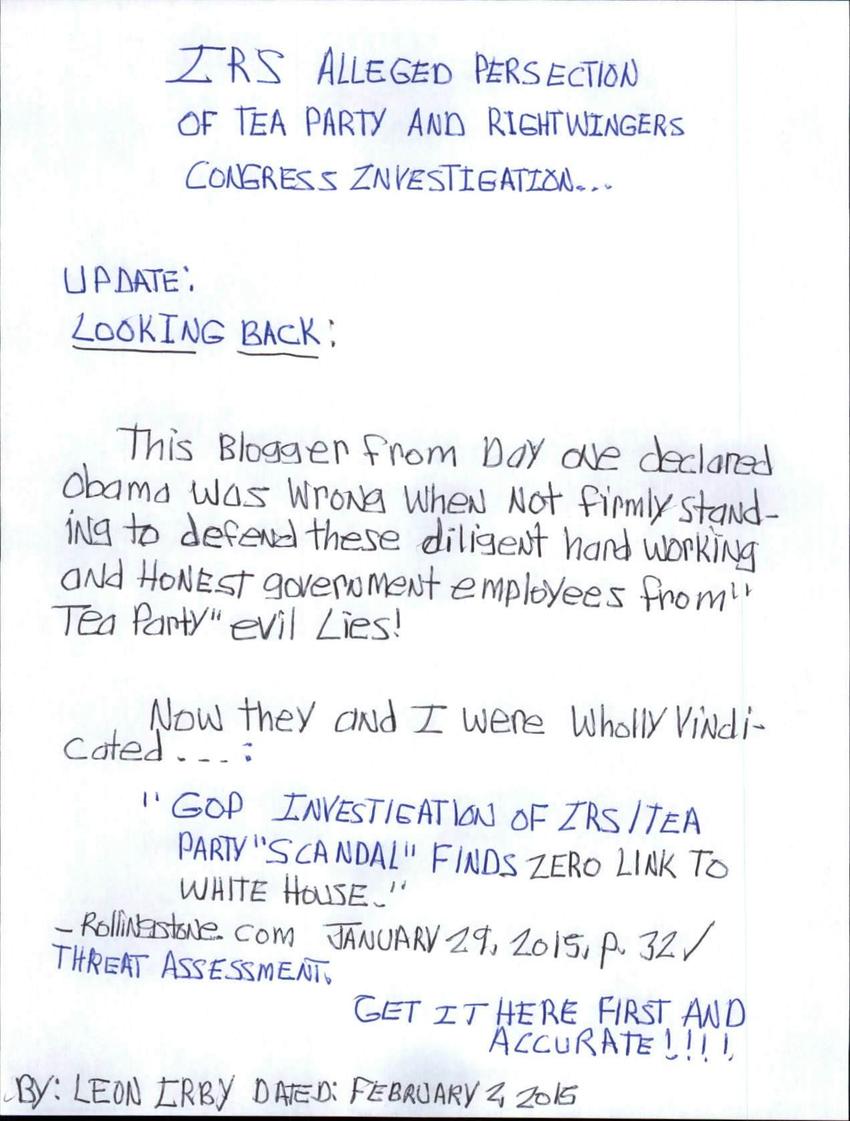 IRS ALLEGED PERSECTION
OF TEA PARTY AND RIGHTWINGERS
CONGRESS INVESTIGATION...
UPDATE:
LOOKING BACK:
This Blogger from Day one declared
Obama was wrong when Not firmly stand-
ing to defend these diligent hard working
and HONEST government employees from"
Tea Party" evil Lies!
Now they and I were Wholly Vindi-
cated . . . . :
" GOP INVESTIGATION OF IRS/TEA
PARTY "SCANDAL" FINDS ZERO LINK TO
WHITE HOUSE."
- Rollingstone.com JANUARY 29, 2015, p. 32 ✓
THREAT ASSESSMENT.
GET IT HERE FIRST AND
ACCURATE!!!!
BY: LEON IRBY DATED: FEBRUARY 2, 2015